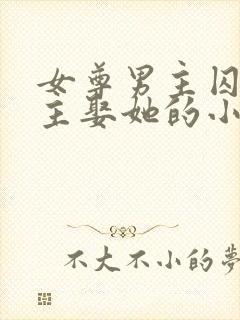 女尊男主囚
主娶她的小
不大不小的夢